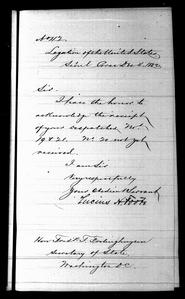 No 112.
Legation of the United States
Seoul Corea Dec 11 188
Sir
I have the honor to
acknowledge the receipt
of your despatches No.
19 & 21. No. 20 not yet
received.
I am Sir
Very respectfully
Your Obedient Servant
Lucius H. Foote
Hon. Fredk. T. Frelinghuysen
Secretary of State,
Washington D.C.